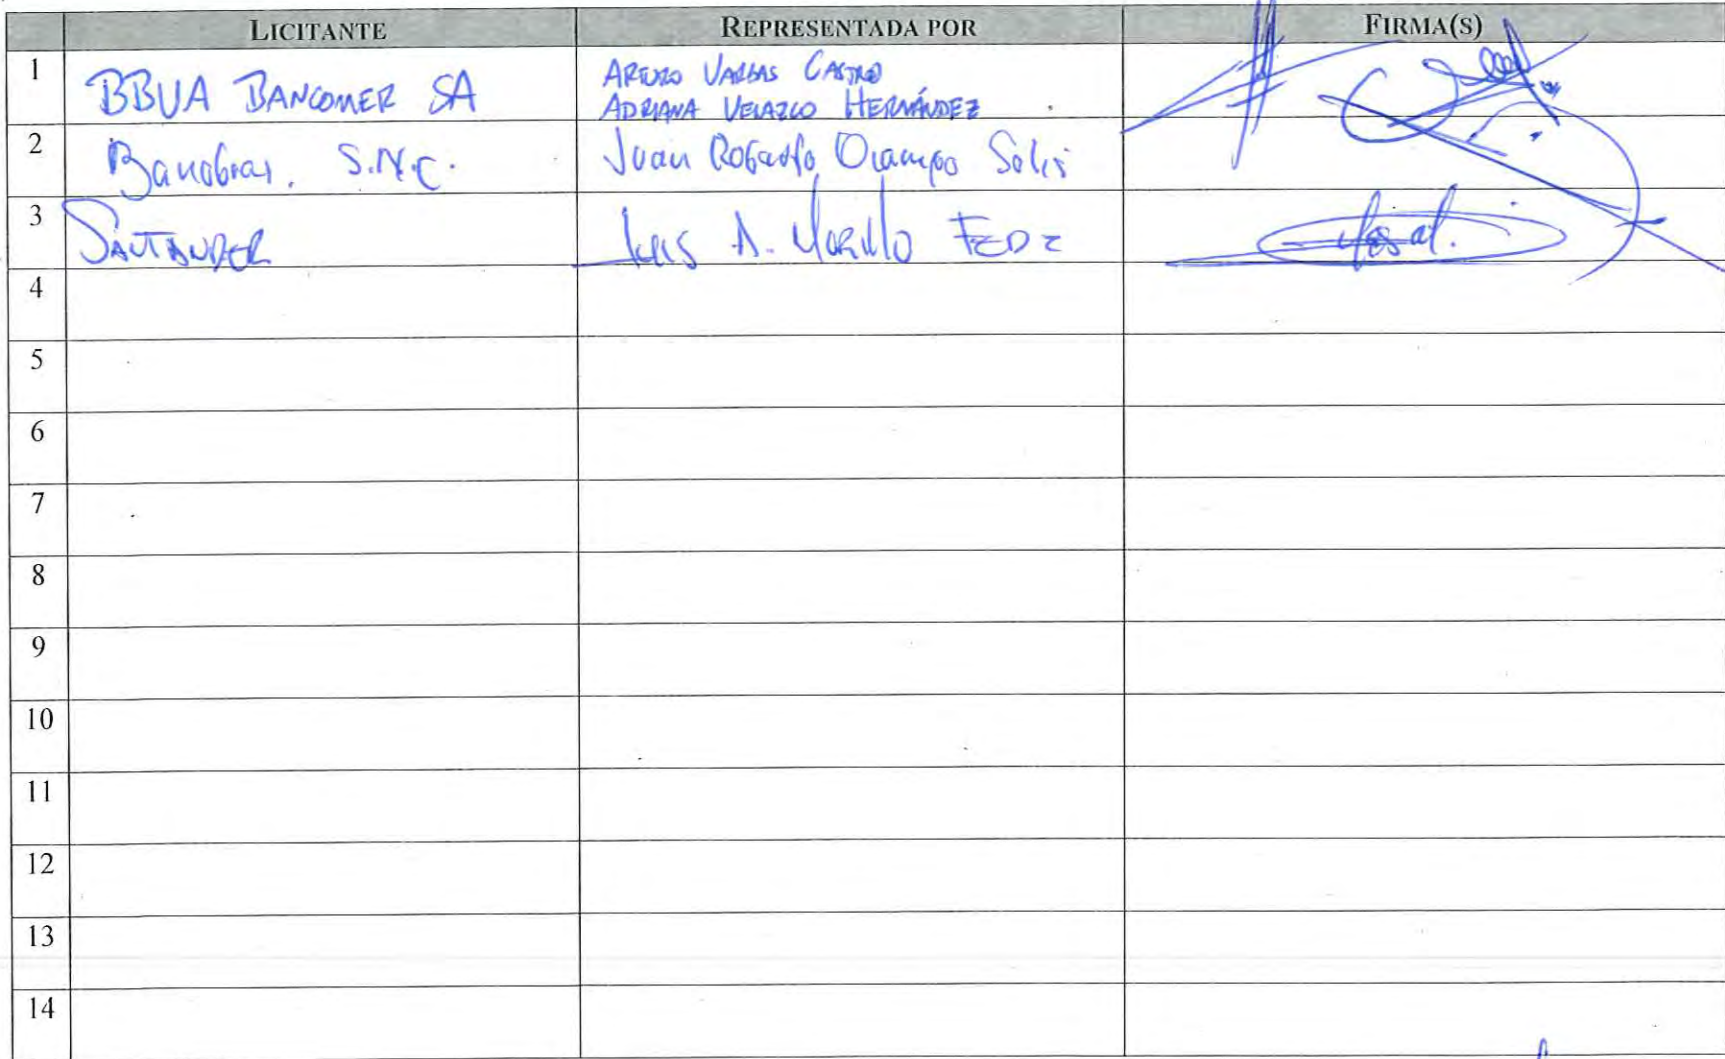 LICITANTE REPRESENTADA POR FIRMA(S)
1 BBVA BANCOMER SA ARTURO VARGAS CASTRO
ADRIANA VELAZCO HERNÁNDEZ
2 Banobras, S.N.C. Juan Rogarfo Ocampo Solis
3 SANTANDER LUIS A. MURILLO FEDZ
4
5
6
7
8
9
10
11
12
13
14